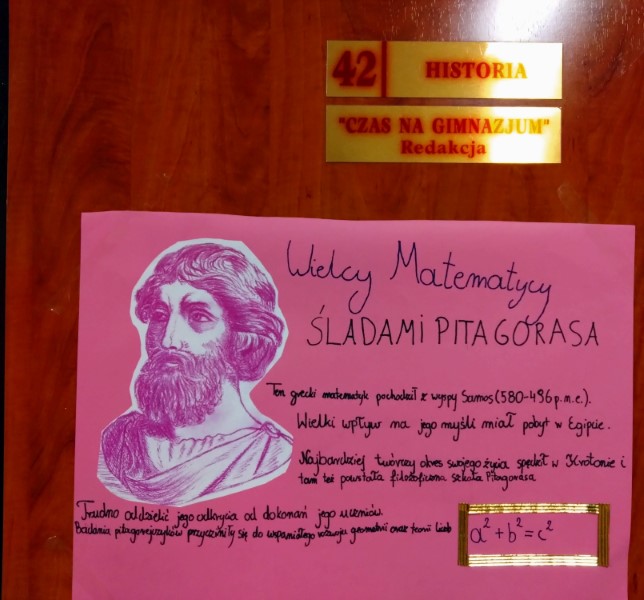 42 HISTORIA
"CZAS NA GIMNAZJUM"
Redakcja
Wielcy Matematycy
ŚLADAMI PITAGORASA
Ten grecki matematyk pochodził z wyspy Samos (580-496 p.n.e.).
Wielki wpływ na jego myśli miał pobyt w Egipcie.
Najbardziej twórczy okres swojego życia spędził w Krotonie i
tam też powstała filozoficzna szkoła Pitagorasa
Trudno oddzielić jego odkrycia od dokonań jego uczniów.
Badania pitagorejczyków przyczyniły się do wspaniałego rozwoju geometrii oraz teorii liczb
a²+b²=c²